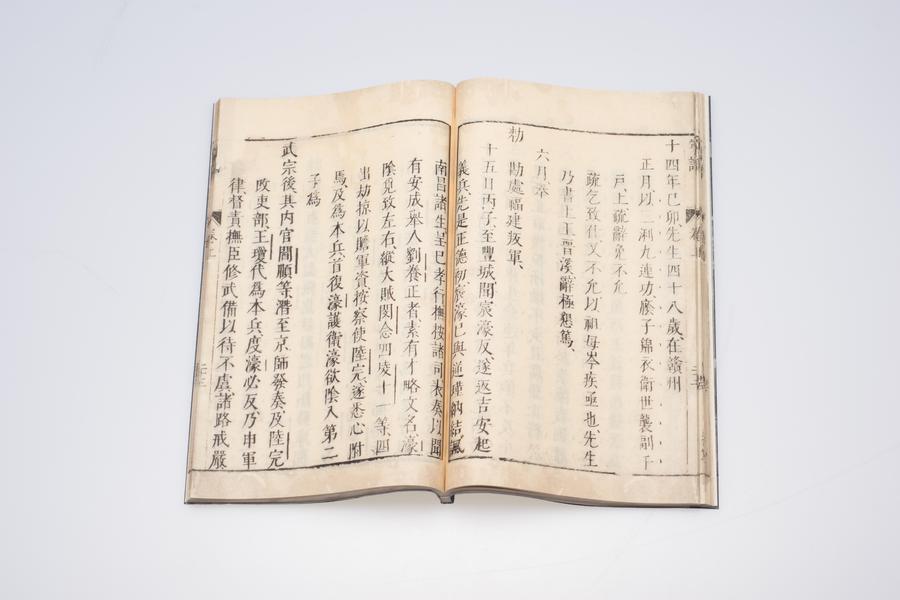 十四年己卯先生四十八歲在贛州
正月以三浰九連功廕子錦衣衛世襲副千
戶上疏辭免不允
疏乞致仕又不允以祖母岑疾亟也先生
乃書上王晋溪辭極懇篤
六月奉
勑勘處福建叛軍
十五日丙子至豐城聞宸濠反遂返吉安起
義兵先是正德初宸濠已與逆瑾納結諷
南昌諸生呈已孝行撫按諸司表奏以聞
有安成舉人劉養正者素有才略文名濠
陰覓致左右縱大賊閔念四凌十一等四
出劫掠以贍軍資按察使陸完遂悉心附
焉及為本兵首復濠護衛濠欲陰入第二
子為
武宗後其内官閻順等潛至京師發奏及陸完
改吏部王瓊代為本兵度濠必反乃申軍
律督責撫臣修武備以待不虞諸路戒嚴